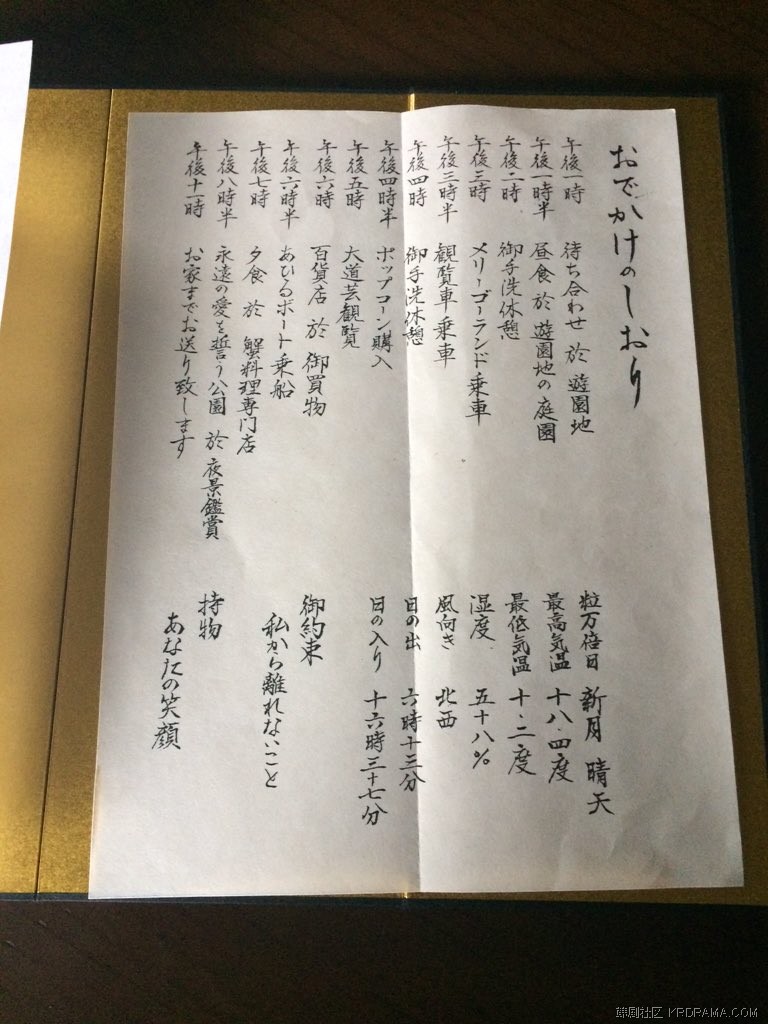 おでかけのしおり
午後一時 待ち合わせ 於 遊園地
午後一時半 昼食 於 遊園地の庭園
午後二時 御手洗休憩
午後三時 メリーゴーランド乗車
午後三時半 観覧車乗車
午後四時 御手洗休憩
午後四時半 ポップコーン購入
午後五時 大道芸観覧
午後六時 百貨店 於 御買物
午後六時半 あひるボート乗船
午後七時 夕食 於 蟹料理専門店
午後八時半 永遠の愛を誓う公園 於 夜景鑑賞
午後十一時 お家までお送り致します
粒万倍日 新月 晴天
最高気温 十八.四度
最低気温 十.二度
湿度 五十八%
風向き 北西
日の出 六時十三分
日の入り 十六時三十七分
御約束
私から離れないこと
持物
あなたの笑顔
韩剧社区 KRDRAMA.COM